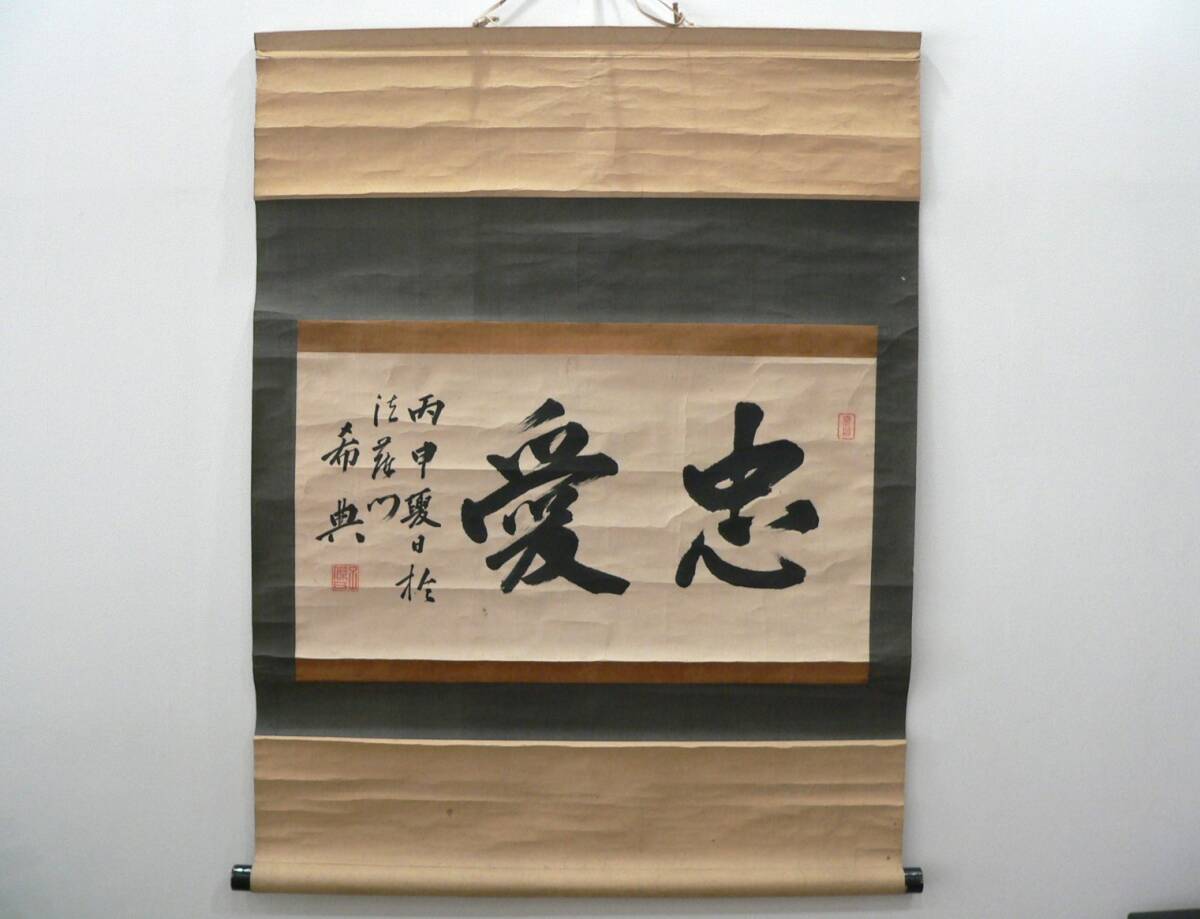 忠愛
丙申夏日於
法蔵門
希典